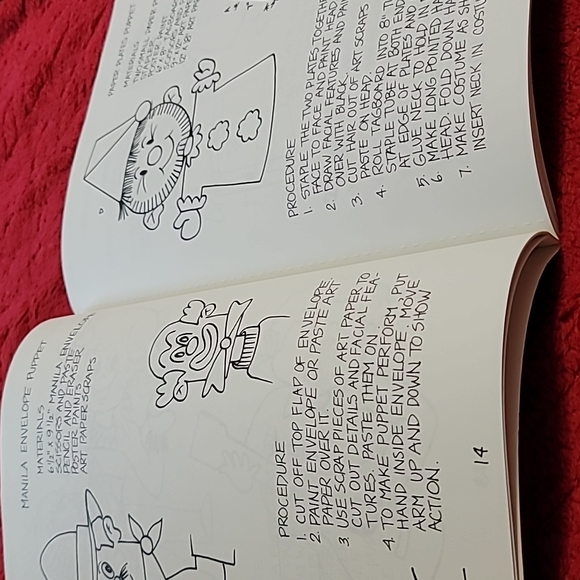 MANILA ENVELOPE PUPPET
MATERIALS
6½" X 9½" MANILA ENVELOPE
SCISSORS AND PASTE
PENCIL AND ERASER
POSTER PAINTS
ART PAPER SCRAPS
PROCEDURE
1. CUT OFF TOP FLAP OF ENVELOPE.
2. PAINT ENVELOPE OR PASTE ART
PAPER OVER IT.
3. USE SCRAP PIECES OF ART PAPER TO
CUT OUT DETAILS AND FACIAL FEA-
TURES. PASTE THEM ON.
4. TO MAKE PUPPET PERFORM, PUT
HAND INSIDE ENVELOPE. MOVE
ARM UP AND DOWN TO SHOW
ACTION.
14
PAPER PLATES PUPPET
MATERIALS
PROCEDURE
1. STAPLE THE TWO PLATES TOGETH
FACE TO FACE AND PAINT HEAD
2. DRAW FACIAL FEATURES AND PAIN
OVER WITH BLACK.
3. CUT HAIR OUT OF ART SCRAPS
PASTE ON HEAD.
4. ROLL TAGBOARD INTO 8" T
STAPLE TUBE AT BOTH END
AT EDGE OF PLATES AND
GLUE NECK TO HOLD IN
5. MAKE LONG POINTED HA
6. HEAD. FOLD DOWN HA
7. MAKE COSTUME AS SH
INSERT NECK IN COSTU